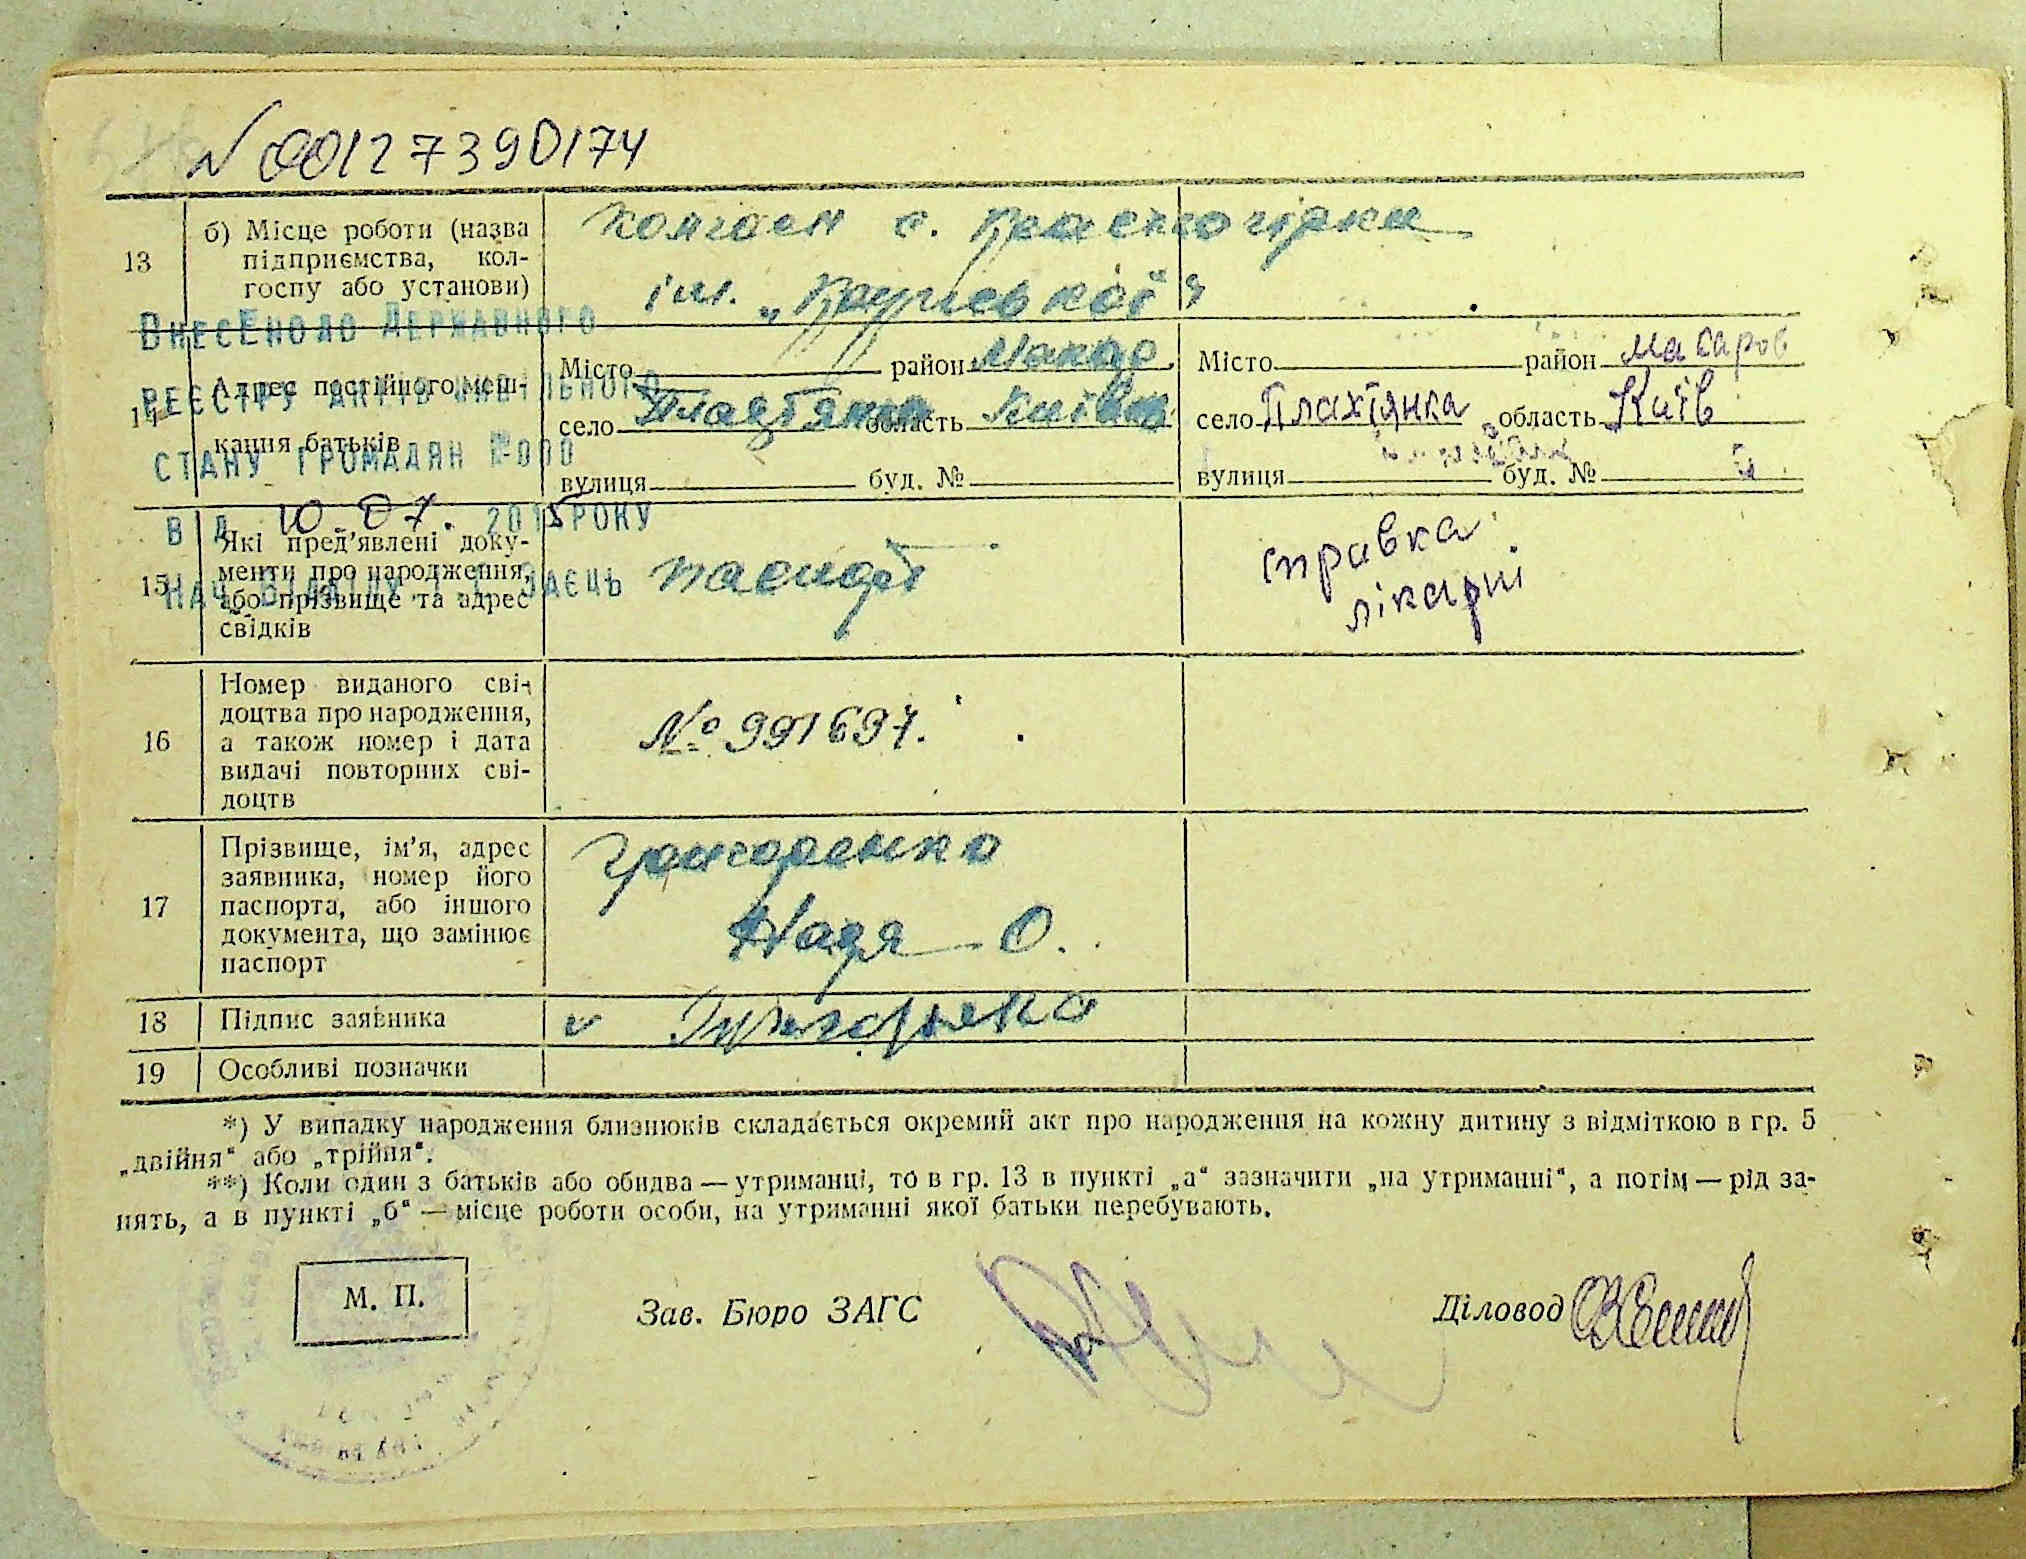 N 00127390174
13
б) Місце роботи (назва
підприємства, кол-
госпу або установи)
колгосп с.
ім. „Крупської"
Внесено до Державного
реєстру актів цивільного
стану громадян №000
від 10.07. 2015 року
Нач. відділу Заєць
14
Адрес постійного меш-
кання батьків
Місто район Макар
село Плахтянка область Київ
вулиця буд. №
Місто район Макаров
село Плахтянка область Київ
вулиця буд. №
15
Які пред'явлені доку-
менти про народження,
або прізвище та адрес
свідків
паспорт
справка
лікарні
16
Номер виданого сві-
доцтва про народження,
а також номер і дата
видачі повторних сві-
доцтв
№ 991697.
17
Прізвище, ім'я, адрес
заявника, номер його
паспорта, або іншого
документа, що замінює
паспорт
Григоренко
Надя О.
18
Підпис заявника
v Григоренко
19
Особливі позначки
*) У випадку народження близнюків складається окремий акт про народження на кожну дитину з відміткою в гр. 5
„двійня" або „трійня".
**) Коли один з батьків або обидва — утриманці, то в гр. 13 в пункті „а" зазначити „на утриманні", а потім — рід за-
нять, а в пункті „б" — місце роботи особи, на утриманні якої батьки перебувають.
М. П.
Зав. Бюро ЗАГС
Діловод